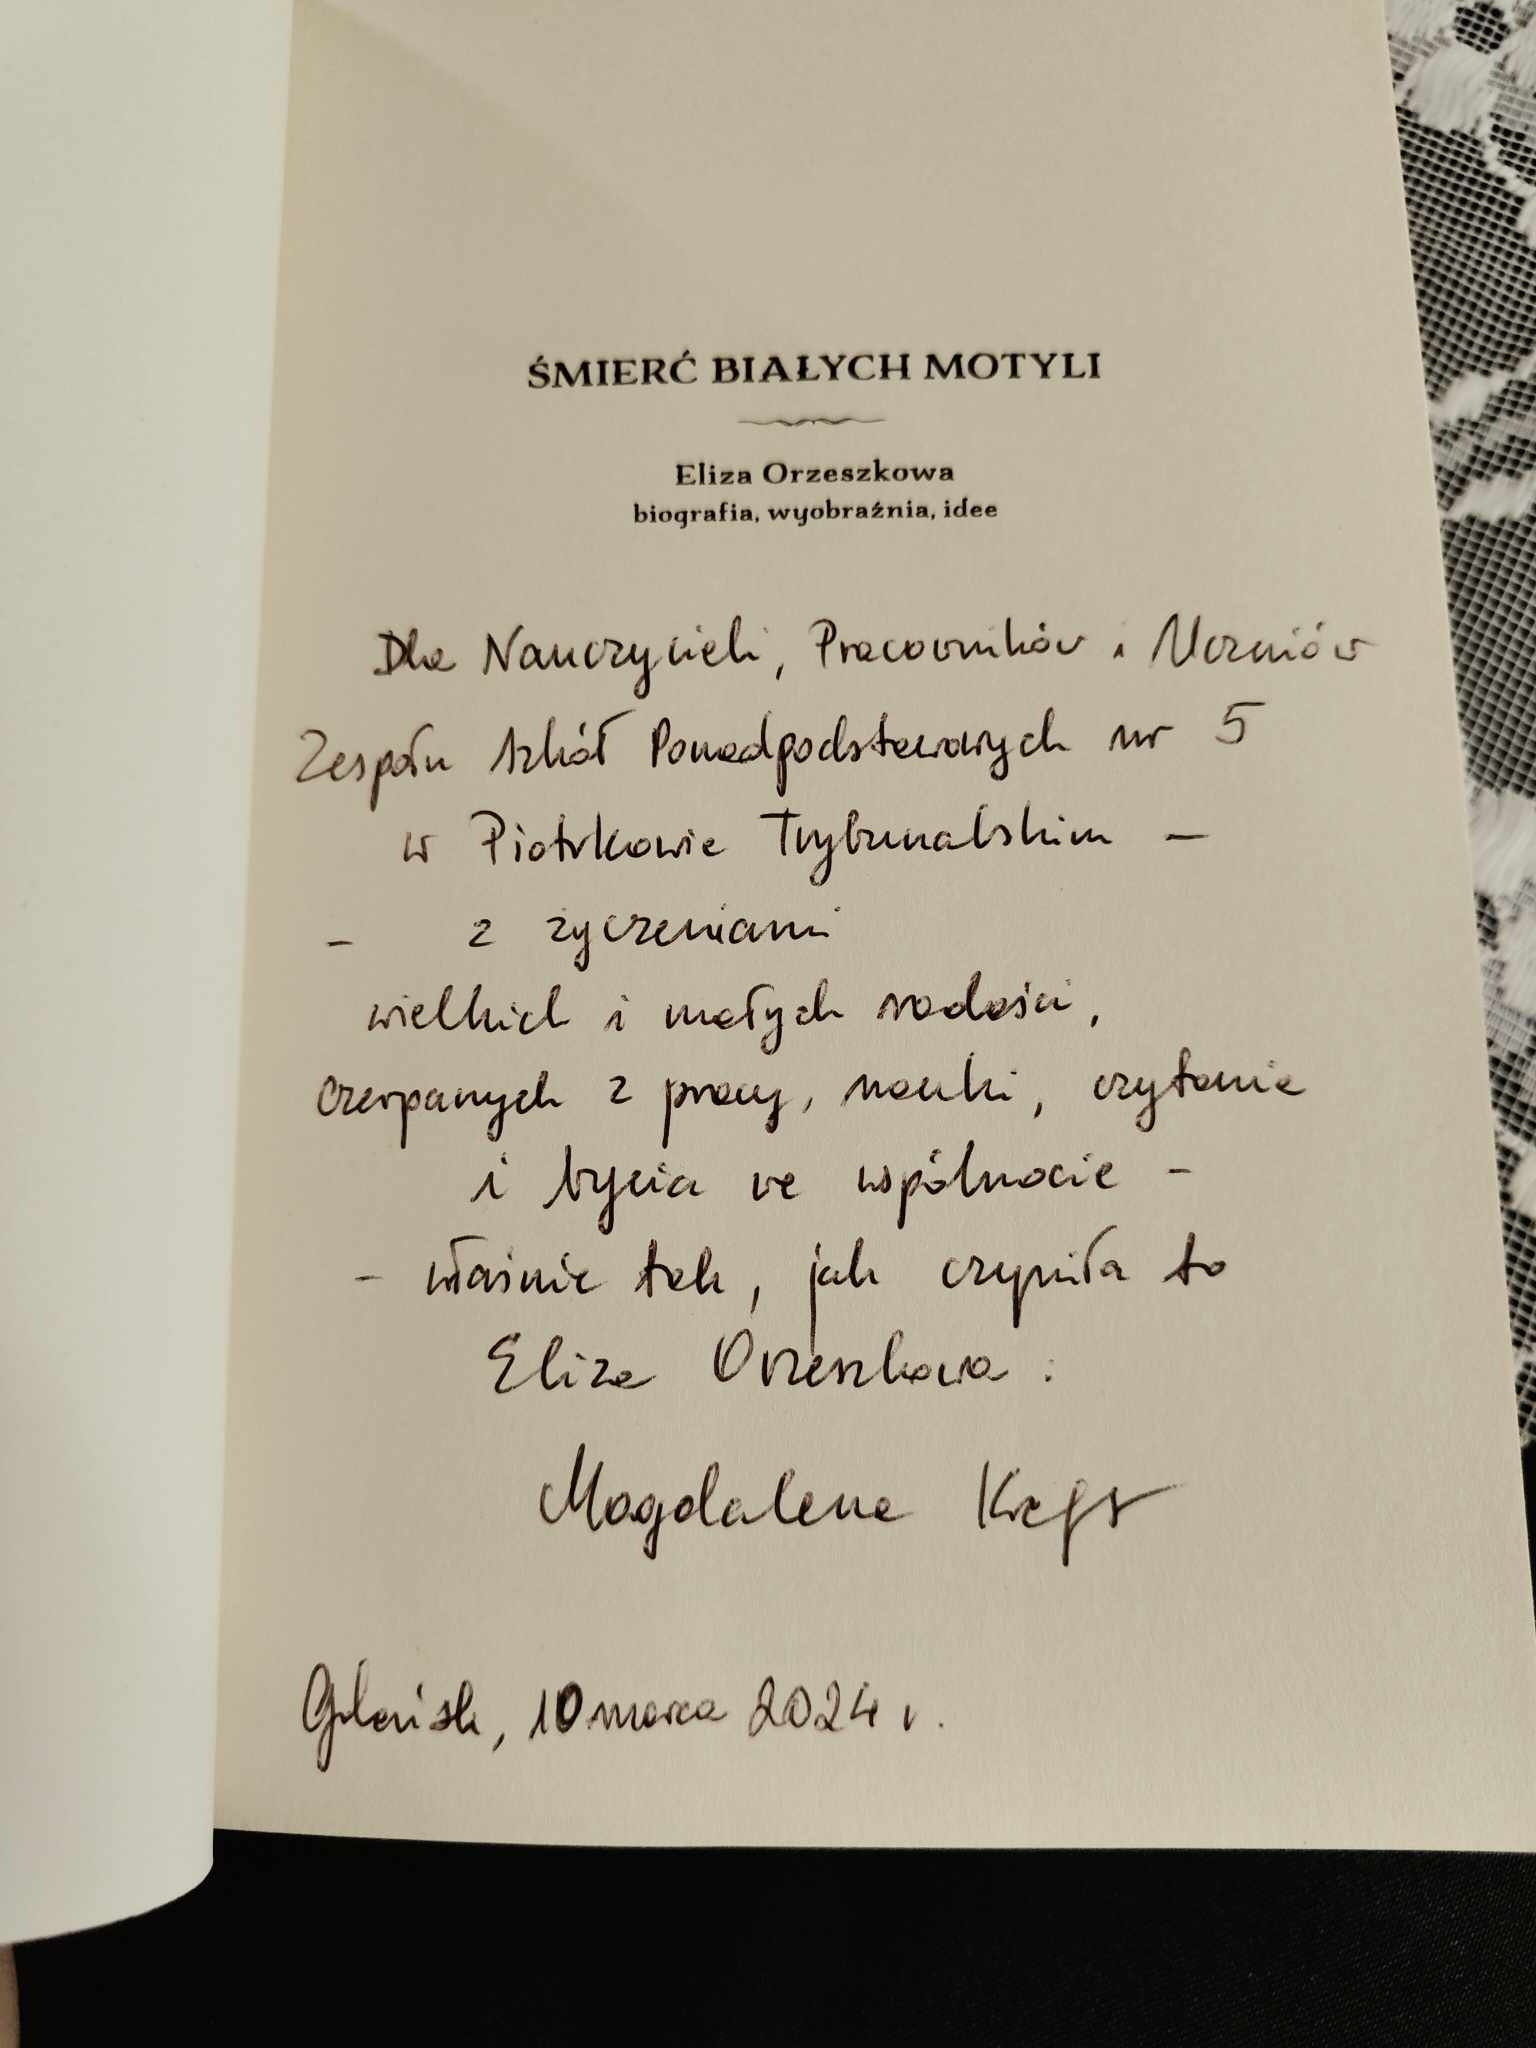 ŚMIERĆ BIAŁYCH MOTYLI
Eliza Orzeszkowa
biografia, wyobraźnia, idee
Dla Nauczycieli, Pracowników i Uczniów
Zespołu Szkół Ponadpodstawowych nr 5
w Piotrkowie Trybunalskim –
– z życzeniami
wielkich i małych radości,
czerpanych z pracy, nauki, czytania
i bycia we wspólnocie –
– właśnie tak, jak czyniła to
Eliza Orzeszkowa.
Magdalena
Gdańsk, 10 marca 2024 r.